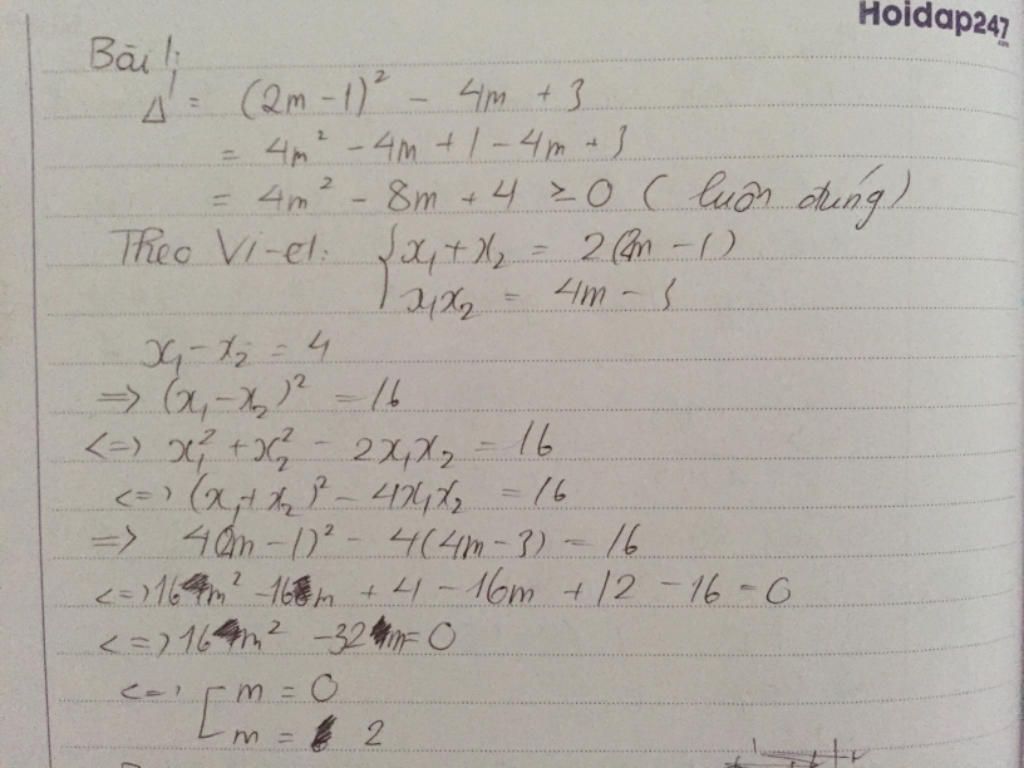 Hoidap247
.com
Bài 1:
Δ' = (2m - 1)² - 4m + 3
= 4m² - 4m + 1 - 4m + 3
= 4m² - 8m + 4 ≥ 0 ( luôn đúng)
Theo Vi-et: { x₁ + x₂ = 2(2m - 1)
x₁x₂ = 4m - 3
x₁ - x₂ = 4
=> (x₁ - x₂)² = 16
<=> x₁² + x₂² - 2x₁x₂ = 16
<=> (x₁ + x₂)² - 4x₁x₂ = 16
=> 4(2m - 1)² - 4(4m - 3) = 16
<=> 16m² - 16m + 4 - 16m + 12 - 16 = 0
<=> 16m² - 32m = 0
<=> [ m = 0
m = 2